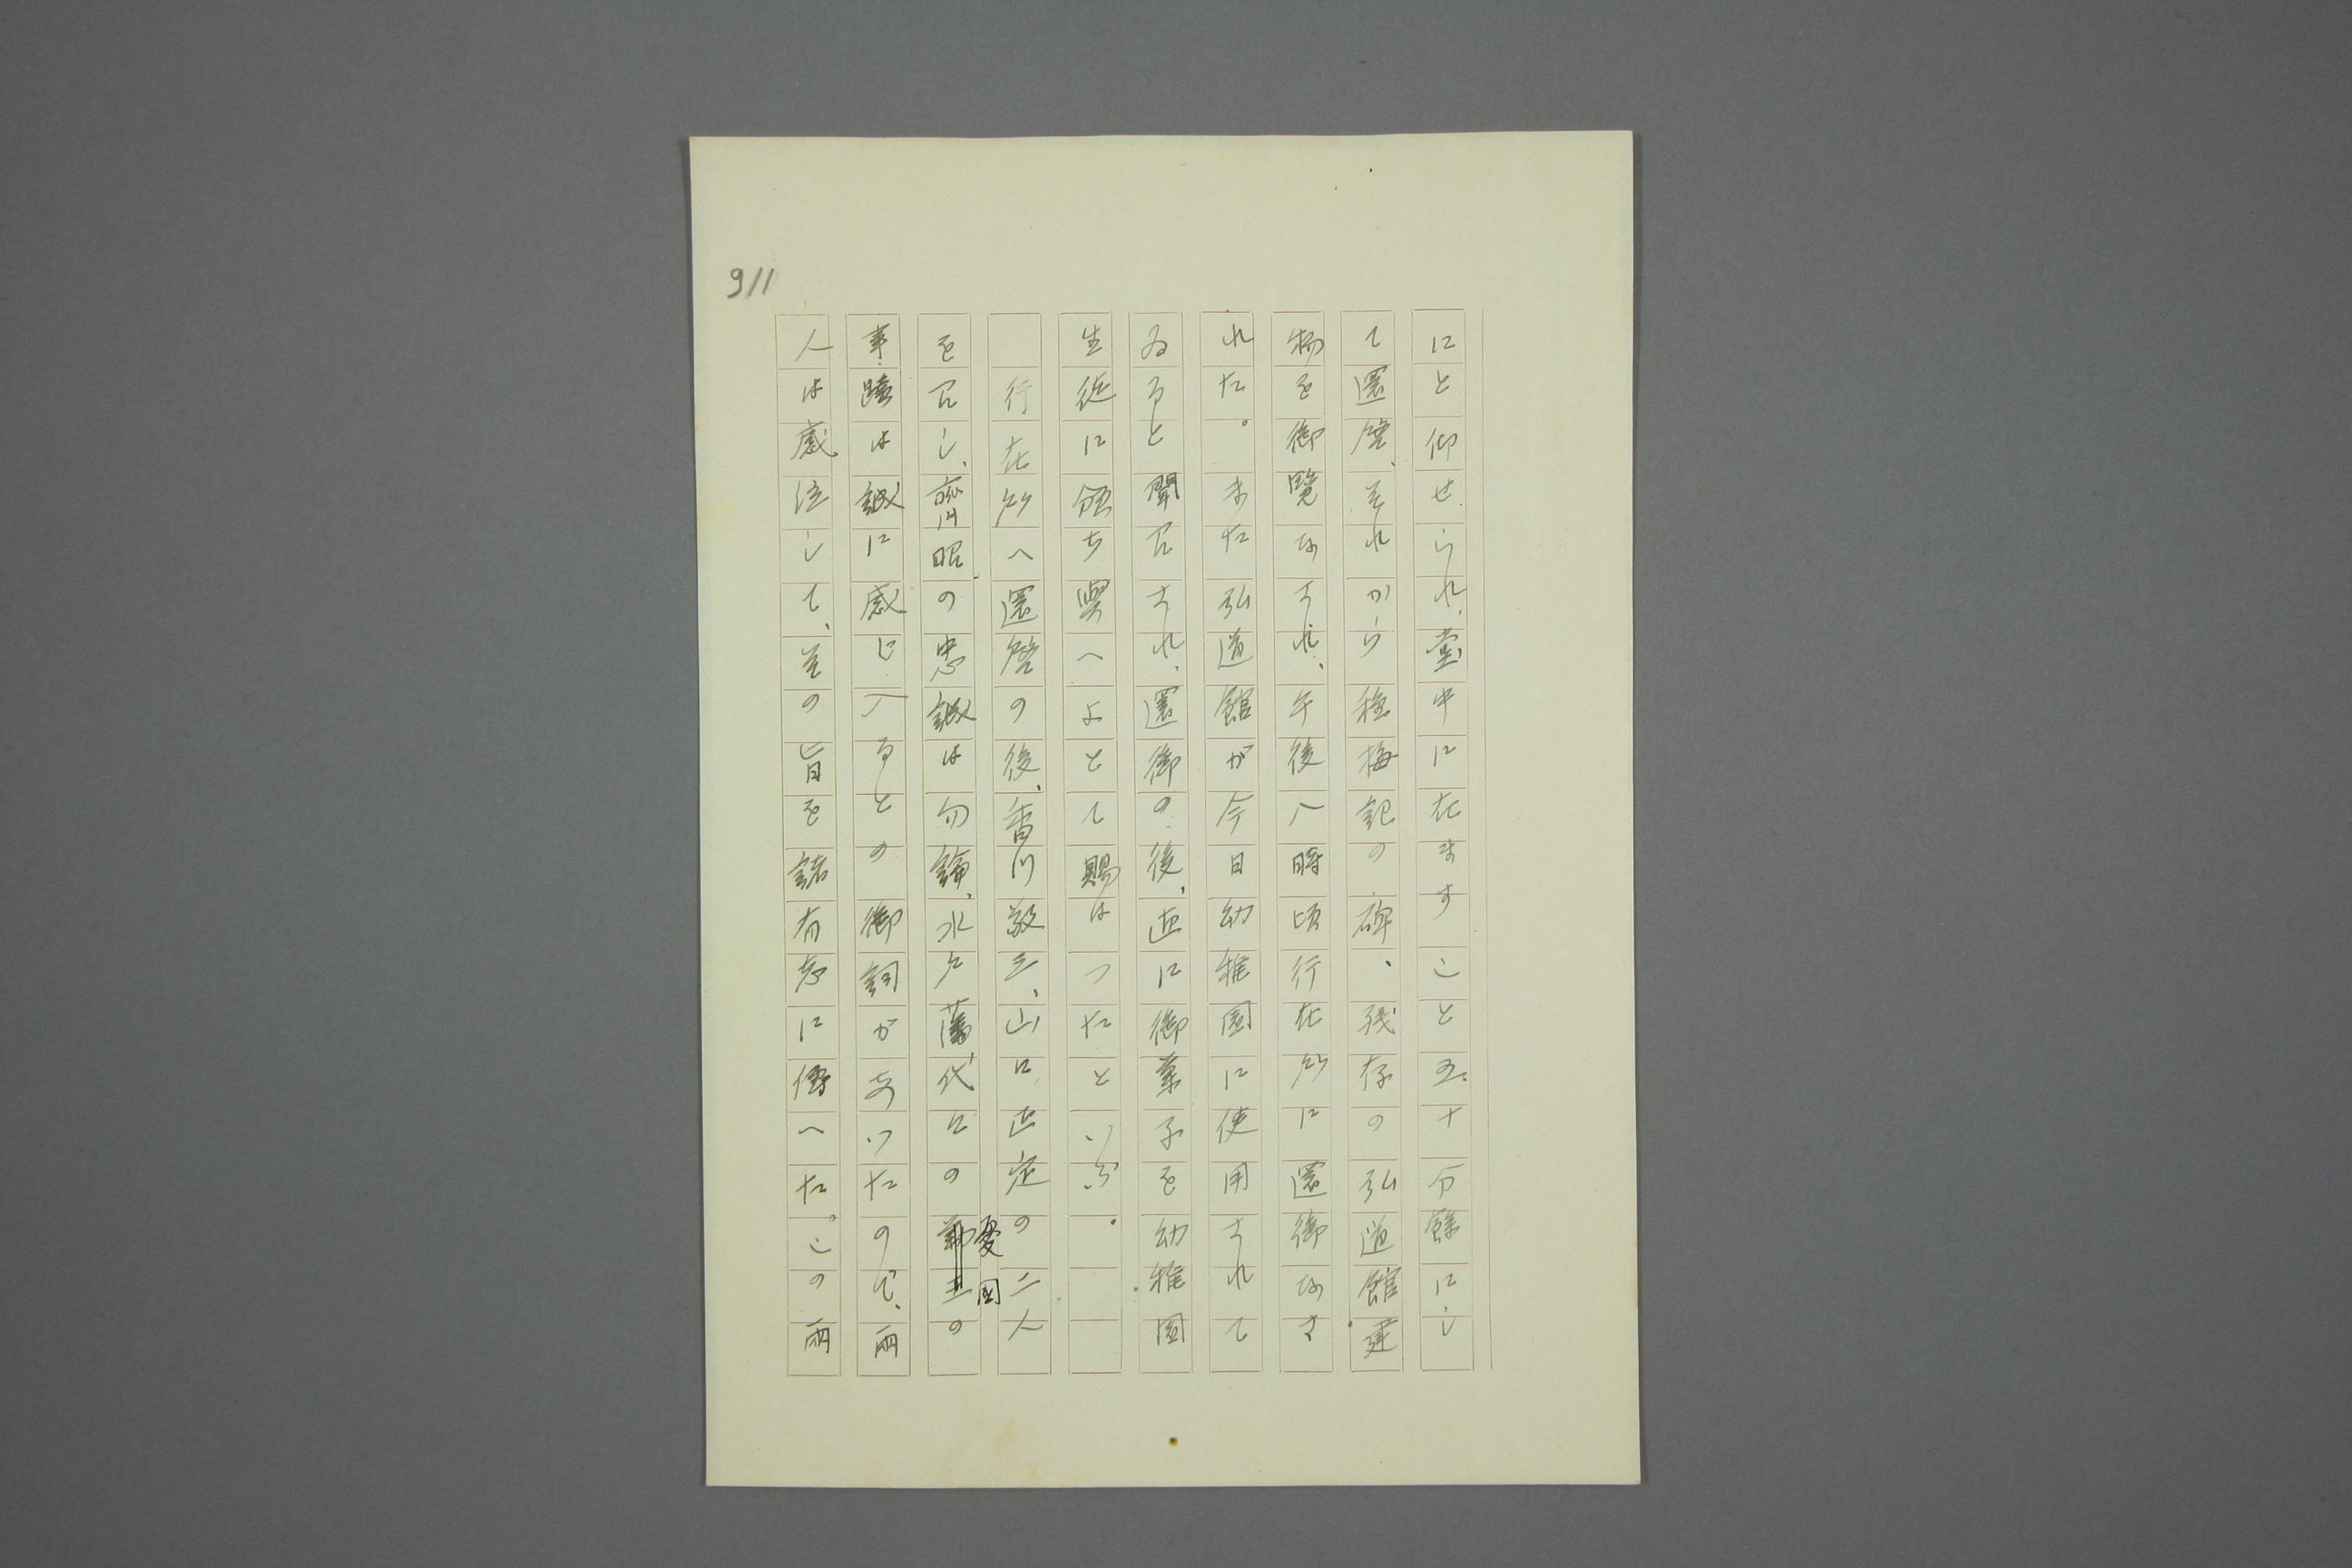 911
にと仰せられ、堂中に在ますこと五十分餘にし
て還啓、それから種梅記の碑、残存の弘道館建
物を御覧なされ、午後八時頃行在所に還御なさ
れた。また弘道館が今日幼稚園に使用されて
ゐると聞召され、還御の後、直に御菓子を幼稚園
生徒に頒ち與へよとて賜はつたといふ。
行在所へ還啓の後、香川敬三、山口正定の二人
を召し、齊昭の忠誠は勿論、水戸藩代々の愛国の
事蹟は誠に感じ入るとの御詞があつたので、兩
人は感泣して、並の旨を諸有志に傳へた。この兩